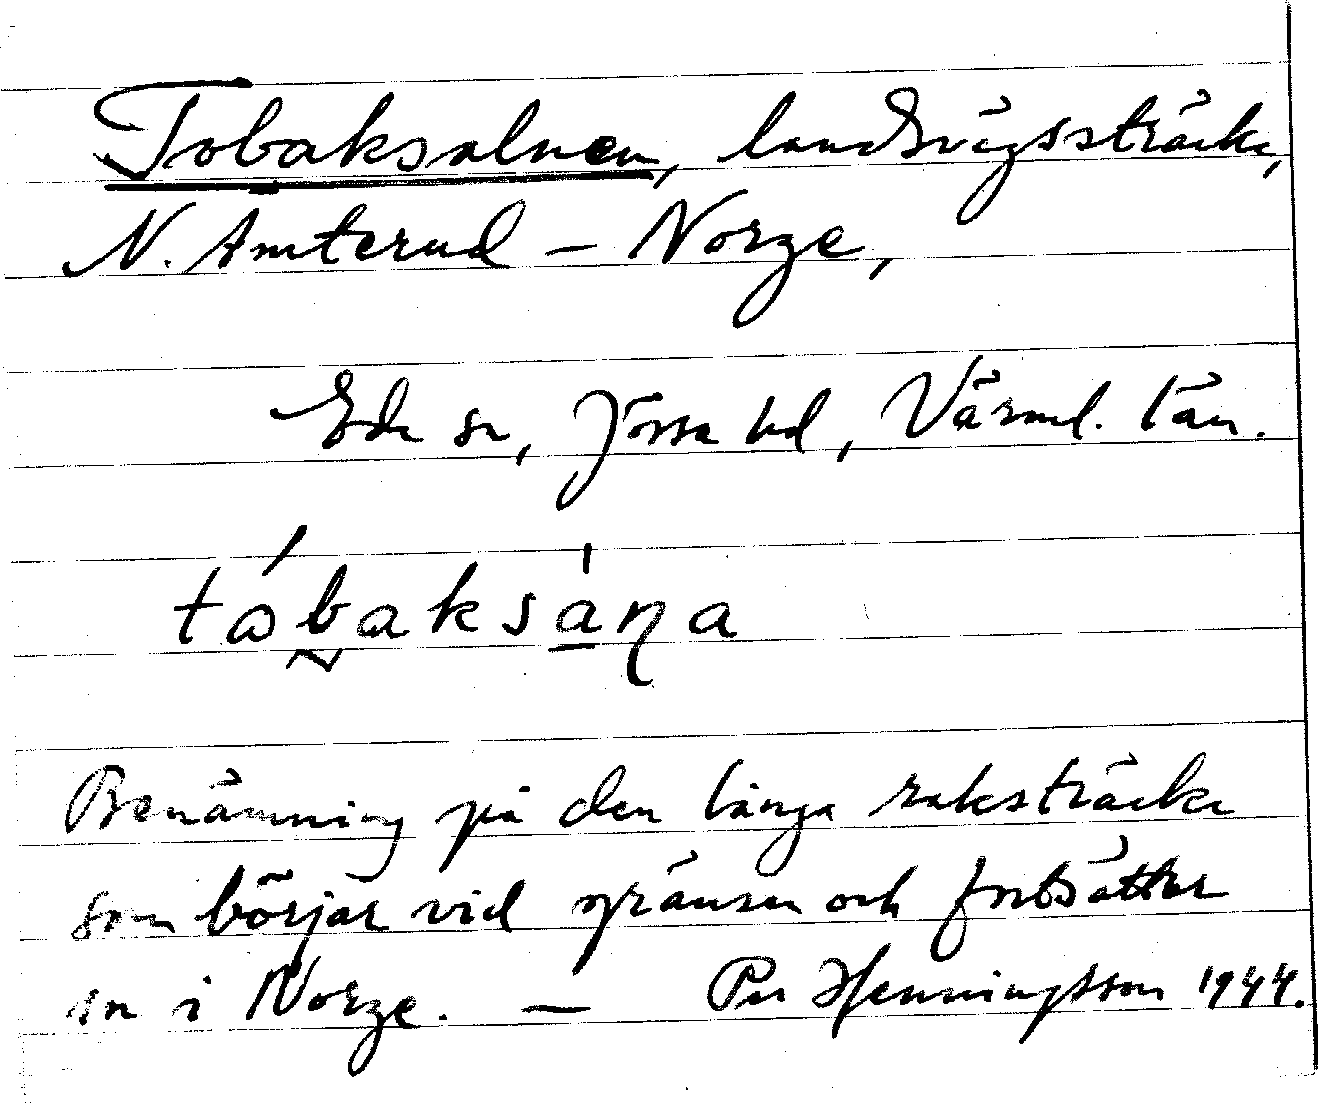 Tobaksalnen, landsvägssträcka,
N. Åmterud – Norge,
Eda sn, Jösse hd, Värml. län.
tábaksàṇa
Benämning på den långa raksträcka
som börjar vid gränsen och fortsätter
in i Norge. — Per Henningsson 1944.